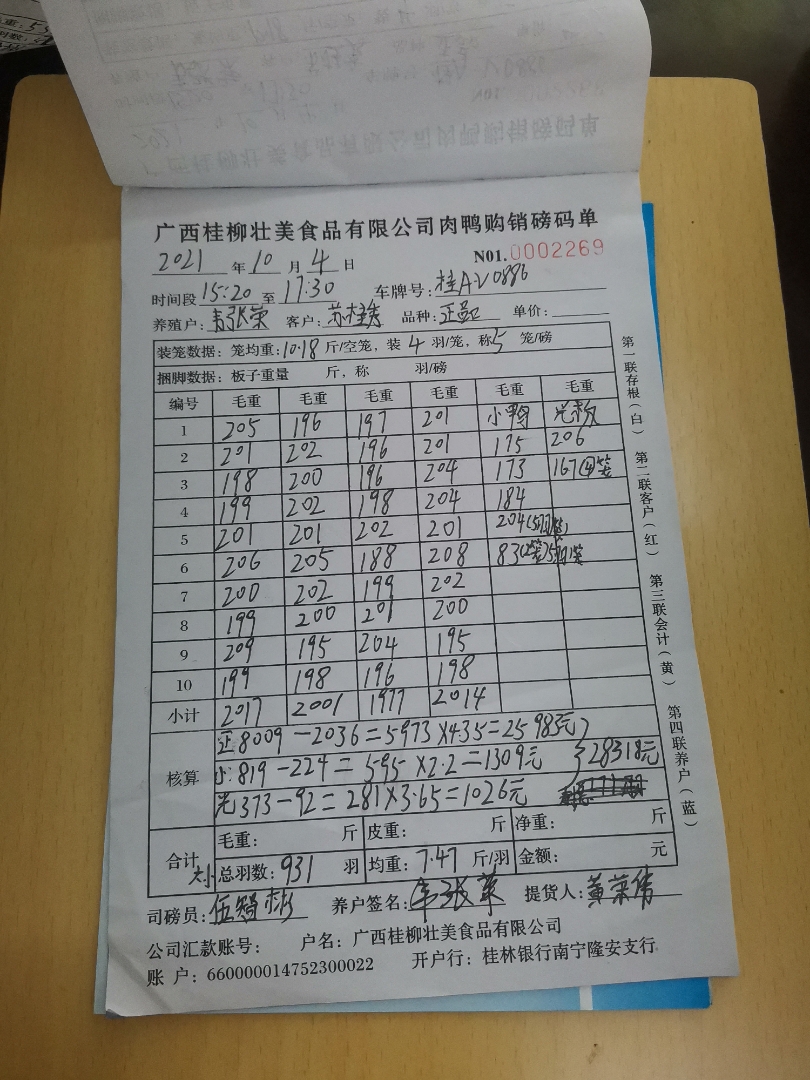 广西桂柳壮美食品有限公司肉鸭购销磅码单
N01.0002269
2021 年 10 月 4 日
时间段 15:20 至 17:30 车牌号: 桂AV0886
养殖户: 韦张荣 客户: 品种: 正品 单价:
装笼数据: 笼均重: 10.18 斤/空笼, 装 4 羽/笼, 称 5 笼/磅
捆脚数据: 板子重量 斤, 称 羽/磅
编号 毛重 毛重 毛重 毛重 毛重 毛重
1 205 196 197 201 小鸭
2 201 202 196 201 175 206
3 198 200 196 204 173 167④笼
4 199 202 198 204 184
5 201 201 202 201 204
6 206 205 188 208
7 200 202 199 202
8 199 200 201 200
9 209 195 204 195
10 199 198 196 198
小计 2017 2001 1977 2014
核算
正 8009-2036=5973×4.35=25983元
小 819-224=595×2.2=1309元 28318元
光 373-92=281×3.65=1026元
合计 毛重: 斤 皮重: 斤 净重: 斤
大小 总羽数: 931 羽 均重: 7.47 斤/羽 金额: 元
司磅员: 伍 彬 养户签名: 韦张荣 提货人: 黄荣伟
公司汇款账号: 户名: 广西桂柳壮美食品有限公司
账 户: 660000014752300022 开户行: 桂林银行南宁隆安支行
第一联存根(白) 第二联客户(红) 第三联会计(黄) 第四联养户(蓝)